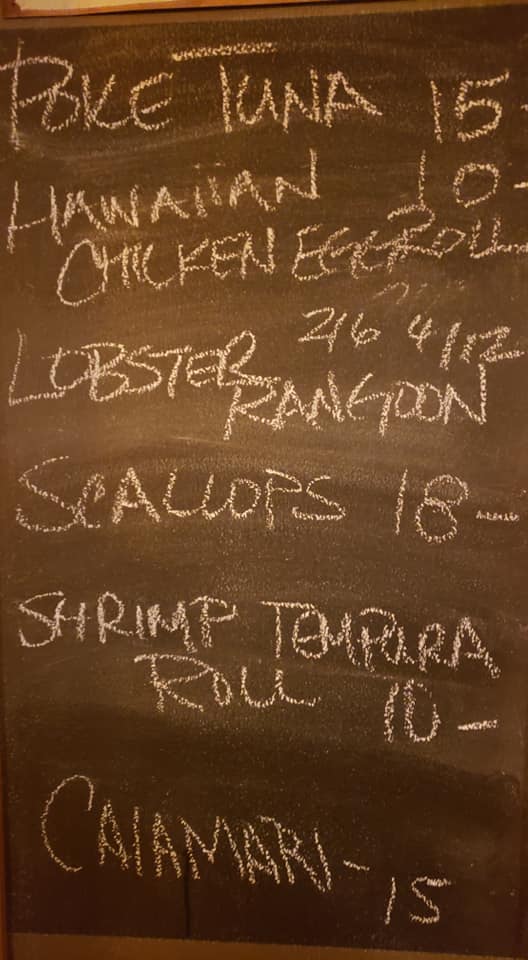 POKE TUNA 15
HAWAIIAN 10-
CHICKEN EGG ROLL
2/6 4/12
LOBSTER
RANGOON
SCALLOPS 18-
SHRIMP TEMPURA
ROLL
10-
CALAMARI-
15